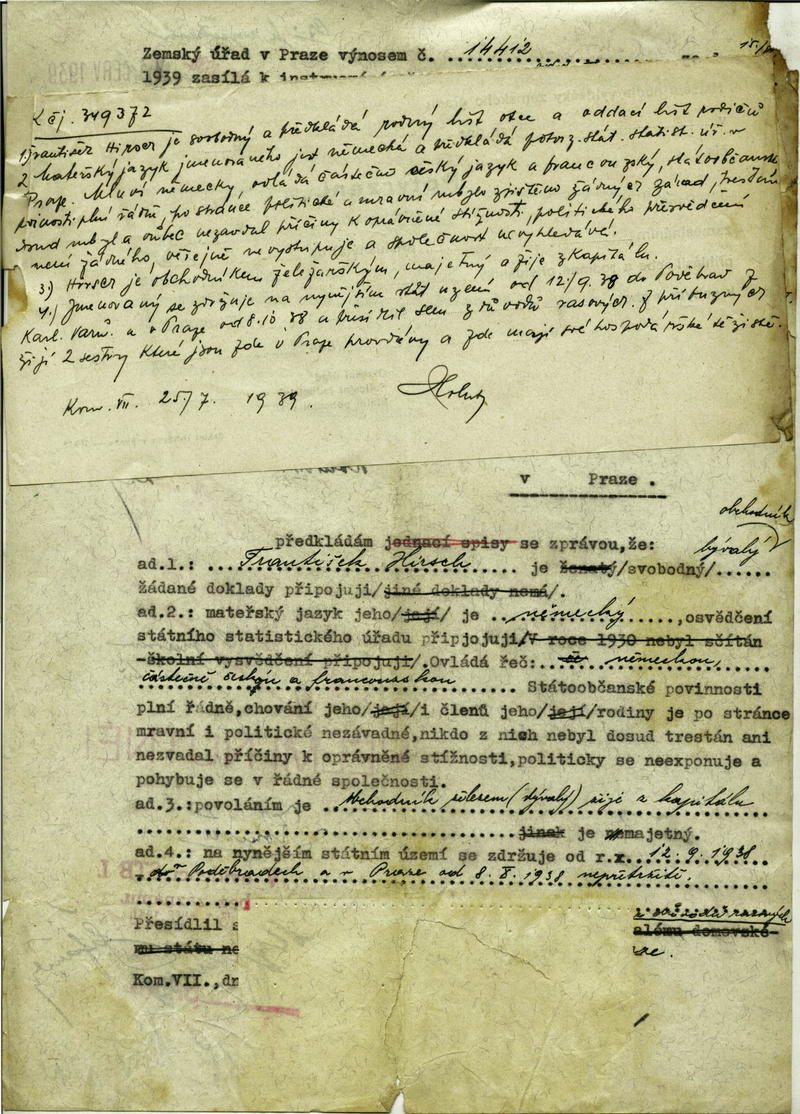 Zemský úřad v Praze výnosem č. 14412
1939 zasílá k
K čj. 349372
1) František Hirsch je svobodný a předkládá rodný list otce a oddací list rodičů
2 Mateřský jazyk jmenovaného jest německá a předkládá potvrz. stát. statist. úř. v
Praze. Mluví německy, ovládá částečně český jazyk a francouzský, státoobčanské
povinnosti plní řádně, po stránce politické a mravní nebylo zjištěno žádných závad, trestán
dosud nebyl a vůbec nezavdal příčiny k oprávněné stížnosti, politického přesvědčení
není žádného, veřejně nevystupuje a společnost nevyhledává.
3.) Hirsch je obchodníkem železářským, majetný a žije z kapitálu.
4.) Jmenovaný se zdržuje na nynějším stát. území od 12/9. 38 do Poděbrad z
Karl. Varů. a v Praze od 8.10 38 a přesídlil sem z důvodů rasových. Z příbuzných
žijí 2 sestry které jsou zde v Praze provdány a zde mají své hospodářské těžiště.
Kom. VII. 25/7. 1939.
v Praze .
obchodník
předkládám jednací spisy se zprávou,že: bývalý
ad.1.: František Hirsch je ženatý/svobodný/
žádané doklady připojuji/jiné doklady nemá/.
ad.2.: mateřský jazyk jeho/její/ je německý ,osvědčení
státního statistického úřadu připjojuji/V roce 1930 nebyl sčítán
-školní vysvědčení připojuji/.Ovládá řeč: německou,
částečně českou a francouzskou Státoobčanské povinnosti
plní řádně,chování jeho/její/i členů jeho/její/rodiny je po stránce
mravní i politické nezávadné,nikdo z nich nebyl dosud trestán ani
nezvadal příčiny k oprávněné stížnosti,politicky se neexponuje a
pohybuje se v řádné společnosti.
ad.3.:povoláním je obchodník železem (bývalý) žije z kapitálu
jinak je nemajetný.
ad.4.: na nynějším státním území se zdržuje od r.x. 12.9.1938
v Poděbradech a v Praze od 8.X.1938 nepřetržitě.
Přesídlil s z důvodů rasových
mu státu ne alému domovské-
Kom.VII.,dr